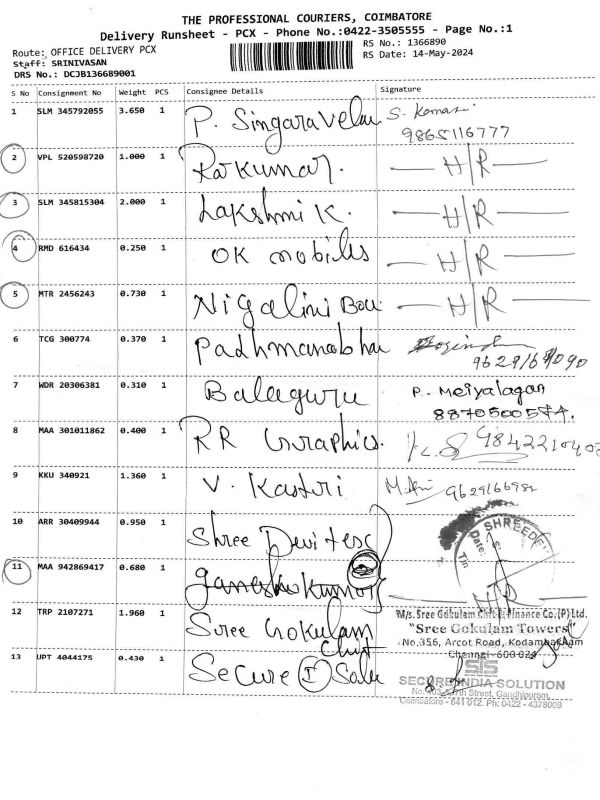 THE PROFESSIONAL COURIERS, COIMBATORE
Delivery Runsheet - PCX - Phone No.:0422-3505555 - Page No.:1
Route: OFFICE DELIVERY PCX RS No.: 1366890
Staff: SRINIVASAN RS Date: 14-May-2024
DRS No.: DCJB136689001
S No Consignment No Weight PCS Consignee Details Signature
1 SLM 345792055 3.650 1 P. Singaravelau S. Komasi
9865116777
2 VPL 520598720 1.000 1 Rajkumar. H/R
3 SLM 345815304 2.000 1 Lakshmi K. H/R
4 RMD 616434 0.250 1 OK mobiles H/R
5 MTR 2456243 0.730 1 Nigalini Bou H/R
6 TCG 300774 0.370 1 Padhmanabha
7 WDR 20306381 0.310 1 Balaguru P. Meiyalagan
8 MAA 301011862 0.400 1 RR Graphics.
9 KKU 340921 1.360 1 V. Kasturi
10 ARR 30409944 0.950 1 Shree Devi tex
SHREEDE
Date:
11 MAA 942869417 0.680 1 ganeshkumar H/R
12 TRP 2107271 1.960 1 Sree Gokulam M/s. Sree Gokulam Chit & Finance Co.(P)Ltd.
Chit "Sree Gokulam Towers"
No.356, Arcot Road, Kodambakkam
Chennai-600 024
13 UPT 4044175 0.430 1 Secure I Solu
SIS
SECURE INDIA SOLUTION
Street, Gandhipuram,
Coimbatore - 641 012. Ph: 0422 - 4378009